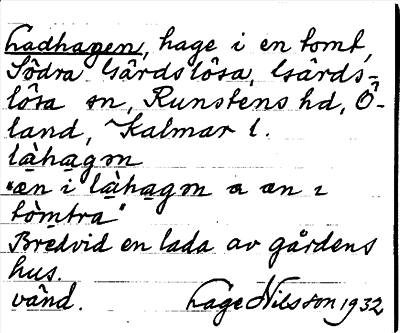 Ladhagen, hage i en tomt,
Södra Gärdslösa, Gärds-
lösa sn, Runstens hd, Ö-
land, Kalmar l.
làhagm
"æn i làhagm a æn ı
tòmtra"
Bredvid en lada av gårdens
hus.
vänd. Lage Nilsson 1932